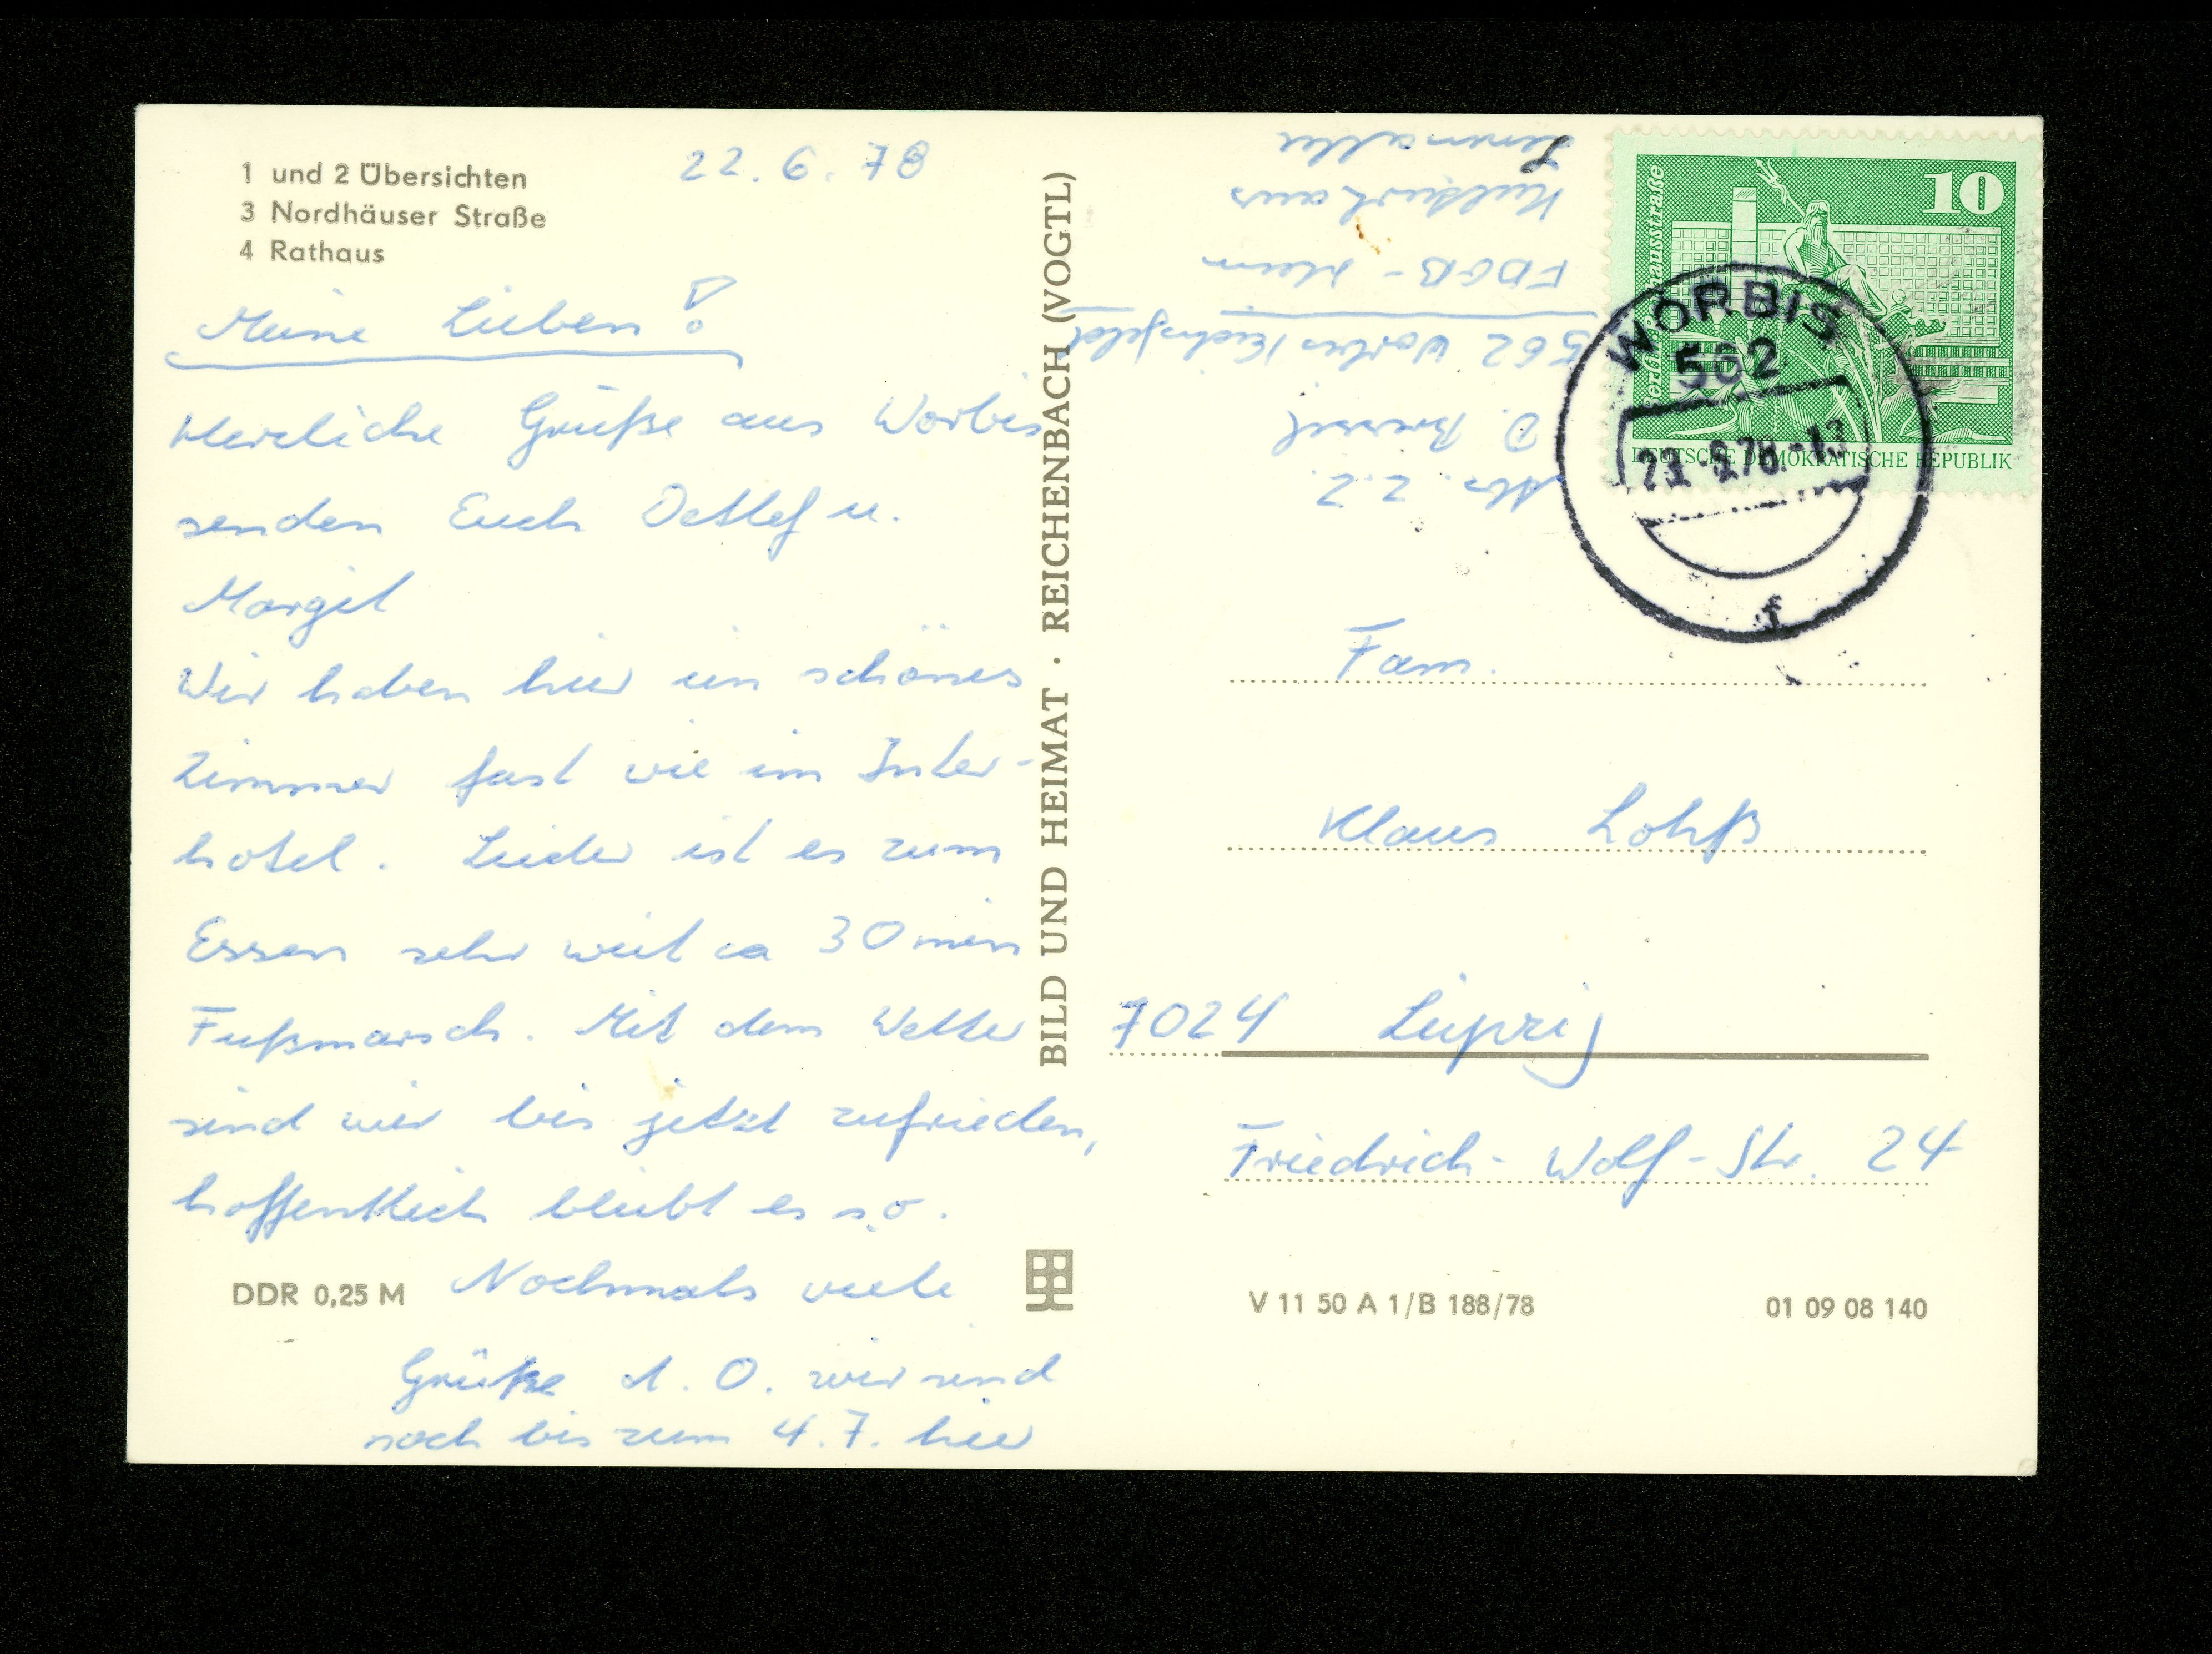 1 und 2 Übersichten
3 Nordhäuser Straße
4 Rathaus
22.6.78
Meine Lieben!
Herzliche Grüße aus Worbis
senden Euch Detlef u.
Margit
Wir haben hier ein schönes
Zimmer fast wie im Inter-
hotel. Leider ist es zum
Essen sehr weit ca 30 min
Fußmarsch. Mit dem Wetter
sind wir bis jetzt zufrieden,
hoffentlich bleibt es so.
Nochmals viele
Grüße d. O. wir sind
noch bis zum 4.7. hier
DDR 0,25 M
BILD UND HEIMAT · REICHENBACH (VOGTL)
Abs. z.Z.
D.
562 Worbis/Eichsfeld
FDGB-Heim
Kulturhaus
10
Berlin
DEUTSCHE DEMOKRATISCHE REPUBLIK
WORBIS
562
f
Fam.
Klaus Lohß
7024 Leipzig
Friedrich-Wolf-Str. 24
V 11 50 A 1/B 188/78
01 09 08 140